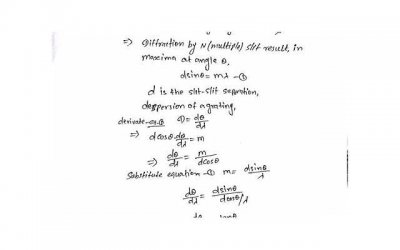 ⇒ Diffraction by N (multiple) slit result, in
maxima at angle θ.
dsinθ = mλ -①
d is the slit-slit separation,
despersion of a grating,
derivate-eq-① D = dθ/dλ
⇒ dcosθ·dθ/dλ = m
⇒ dθ/dλ = m/dcosθ
Sabstitute equation -① m = dsinθ/λ
dθ/dλ = dsinθ/dcosθ/λ